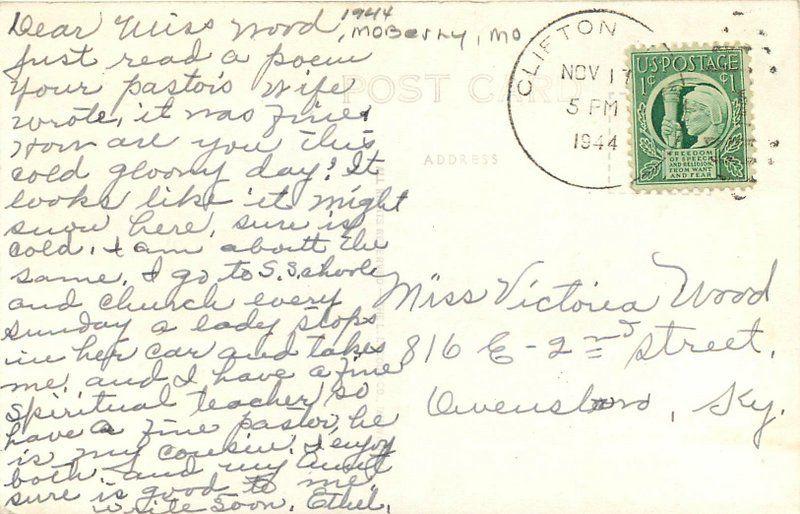 Dear Miss Wood,
1944
Moberly, Mo
Just read a poem
your pastor's wife
wrote, it was fine.
How are you this
cold gloomy day? It
looks like it might
snow here, sure is
cold. I am about the
same. I go to S. School
and church every
Sunday a lady stops
in her car and takes
me, and I have a fine
spiritual teacher, so
have a fine pastor, he
is my cousin. I enjoy
both and my Aunt
sure is good to me.
Write soon. Ethel.
POST CARD
ADDRESS
CLIFTON
NOV 17
5 PM
1944
U.S. POSTAGE
1¢ 1¢
FREEDOM
OF SPEECH
AND RELIGION,
FROM WANT
AND FEAR
Miss Victoria Wood
816 E - 2nd Street,
Owensboro, Ky.